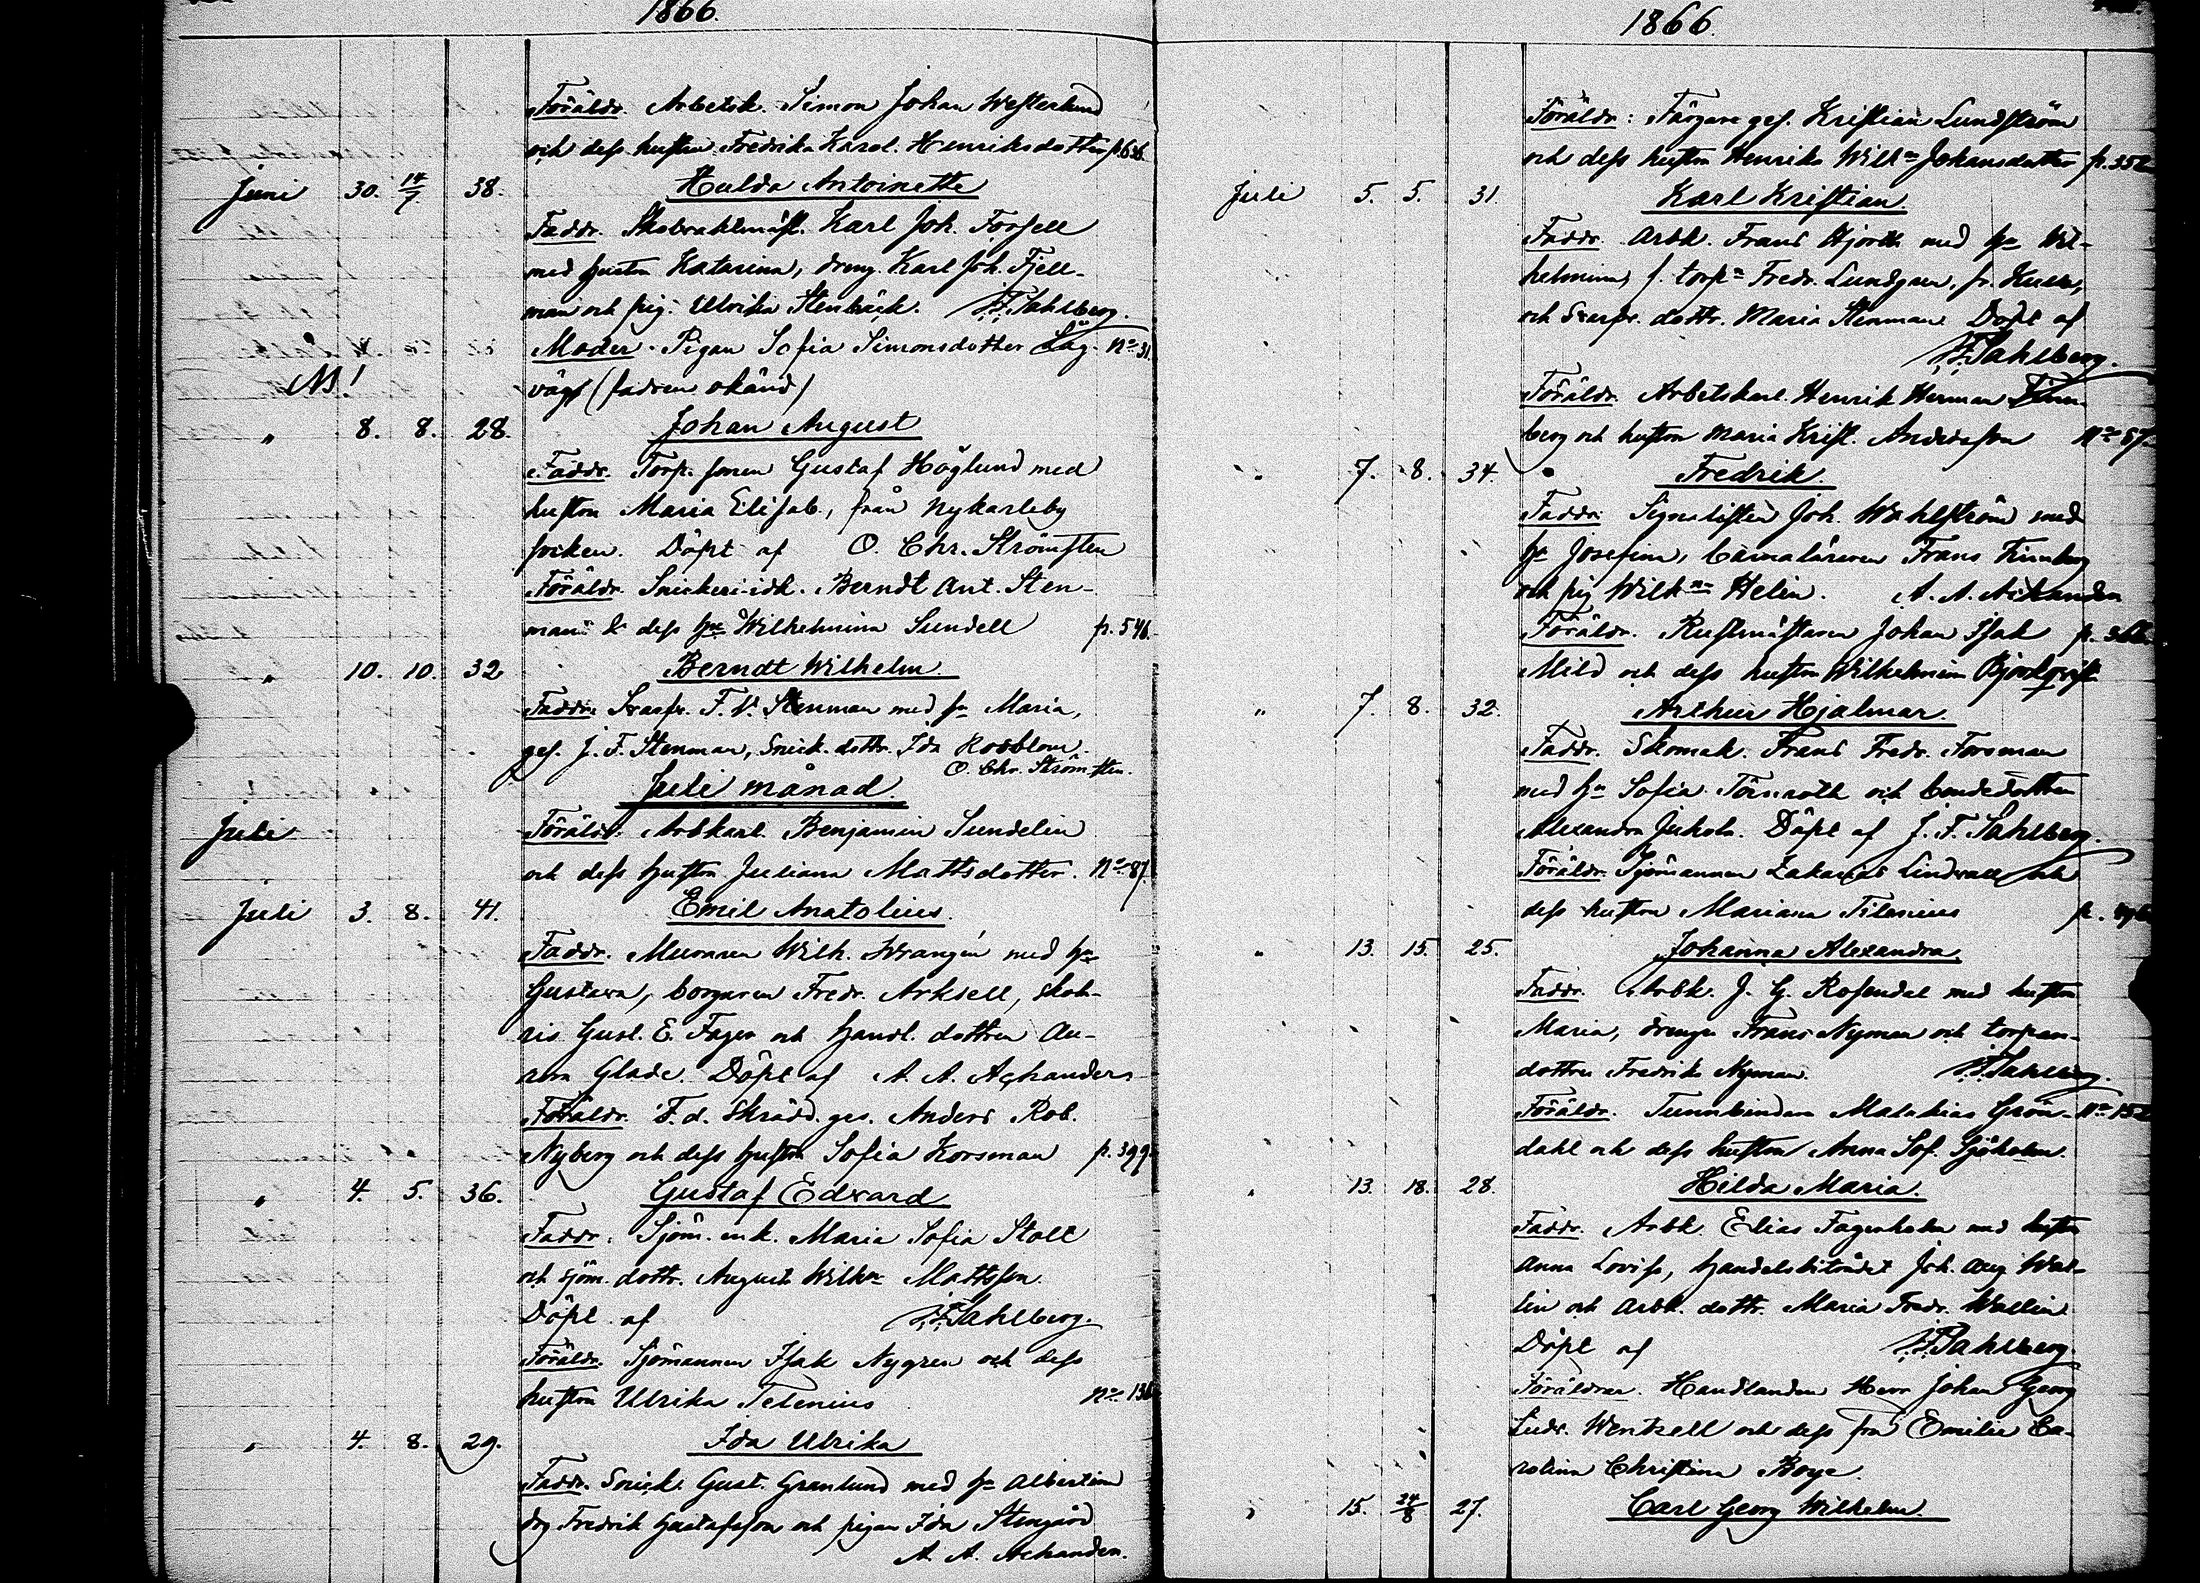 1866.
Föräldr. Arbetsk. Simon Johan Westerlund
och dess hustru Fredrika Karol. Henriksdotter p.636.
Juni 30. 14/7 38. Hulda Antoinette
Faddr. Skolvaktmäst. Karl Joh. Forsell
med hustru Katarina, dreng. Karl Joh. Fjell-
man och pig. Ulrika Stenbäck. J.F. Sahlberg.
Moder. Pigan Sofia Simonsdotter Låg- No 31.
NB! vägs (fadren okänd)
" 8. 8. 28. Johan August
Faddr. Torp. sonen Gustaf Höglund med
hustru Maria Elisab., från Nykarleby
socken. Döpt af O. Chr. Strömsten
Föräldr. Snickeri-idk. Berndt Ant. Sten-
man & dess hu Wilhelmina Sundell p. 546.
" 10. 10. 32 Berndt Wilhelm.
Faddr. Svarfv. F. V. Stenman med hu Maria,
ges. J. F. Stenman, Snick. dottr. Ida Rosblom.
O. Chr. Strömsten.
Juli månad.
Juli Föräldr. Arbkarl. Benjamin Sundelin
och dess hustru Juliana Mattsdotter. No 87.
Juli 3. 8. 41. Emil Anatolius.
Faddr. Muraren Wilh. Wrangén med hu
Gustava, borgaren Fredr. Arksell, skol-
ris Gust. E. Fager och handl. dottren Au-
rora Glade. Döpt af A. A. Achander
Föräldr. F. d. Skrädd. ges. Anders Rob.
Nyberg och dess hustru Sofia Korsman p. 399.
" 4. 5. 36. Gustaf Edvard
Faddr. Sjöm. enk. Maria Sofia Stolt
och sjöm. dottr. Augusta Wilhna Mattsson.
Döpt af J.F. Sahlberg.
Föräldr. Sjömannen Isak Nygren och dess
hustru Ulrika Telenius No 136
" 4. 8. 29. Ida Ulrika
Faddr. Snick. Gust. Granlund med hu Albertina
drg Fredrik Gustafsson och pigan Ida Stengård
A. A. Achander.
1866.
Föräldr: Färgare ges. Kristian Lundström
och dess hustru Henrika Wilhna Johansdotter p. 352
Juli 5. 5. 31. Karl Kristian.
Faddr. Arbk. Frans Hjorth med hu Wil-
helmina, f. torpn Fredr. Lundgren, fr.
och Svarfv. dottr. Maria Stenman. Döpt af
J.F. Sahlberg.
Föräldr. Arbetskarl Henrik Herman Finn-
berg och hustru Maria Krist. Andersson No 57
" 7. 8. 34. Fredrik.
Faddr: Signalisten Joh. Wahlström med
hu Josefina, Finnberg
och pig Wilhna Helin. A. A. Achander
Föräldr. Rustmästaren Johan Isak p.
Mild och dess hustru Wilhelmina Björkqvist
" 7. 8. 32. Arthur Hjalmar.
Faddr. Skomak. Frans Fredr. Forsman
med hu Sofia Törnroth och bondedottren
Alexandra Jukola. Döpt af J. F. Sahlberg.
Föräldr. Sjömannen Zakarias Lindvall och
dess hustru Mariana Tilenius p.
" 13. 15. 25. Johanna Alexandra
Faddr. Arbk. J. G. Rosendal med hustru
Maria, drengen Frans Nyman och torpar-
dottren Fredrika Nyman. J.F. Sahlberg.
Föräldr. Tunnbindaren Malakias Grön- No 152
dahl och dess hustru Anna Sof. Sjöholm.
" 13. 18. 28. Hilda Maria.
Faddr. Arbk. Elias Fagerholm med hustru
Anna Lovisa, handelsbiträdet Joh. Aug. Wal-
lin och arbk. dottr. Maria Fredr. Wallin
Döpt af J.F. Sahlberg.
Föräldrar. Handlanden Herr Johan Georg
Ludv. Wentzell och dess fru Emilie Ca-
rolina Christina Boye.
" 15. 24/8 27. Carl Georg Wilhelm.